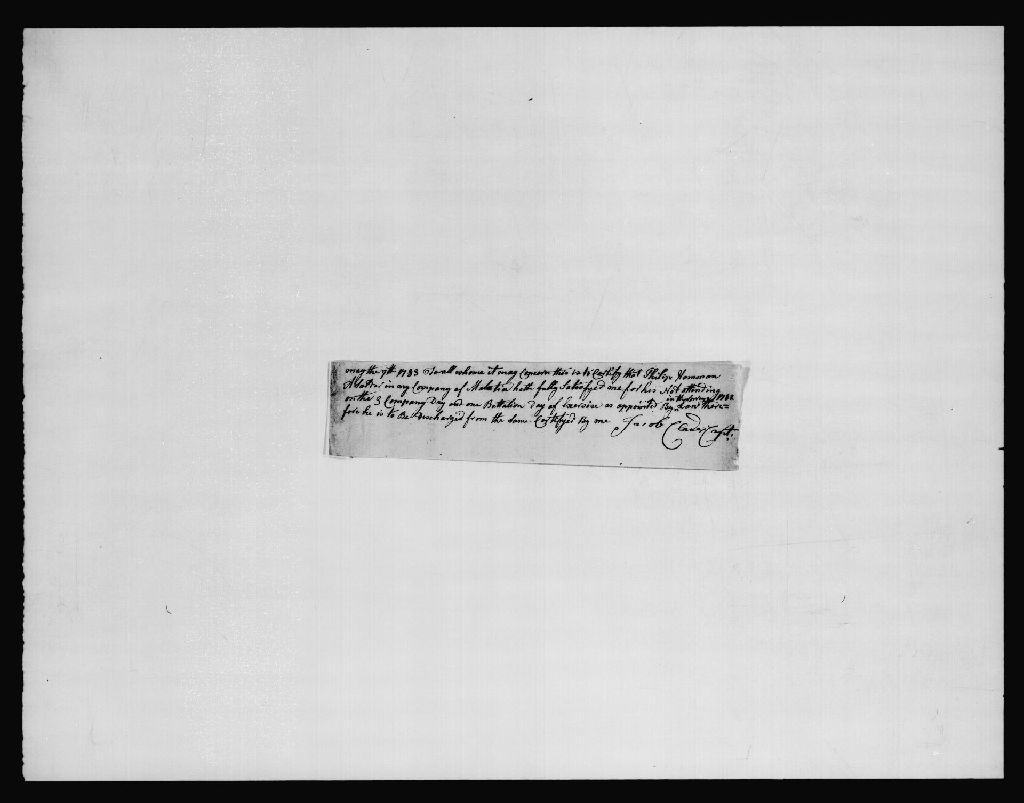 may the 7th 1783 To all whome it may Concern this is to Certify that Philip
in my Company of Malatia hath fully Satisfyed me for his Not attending
in the Spring 1782
on the 3 Company Day and one Battalion Day of Exercise as appointed By Law there=
fore he is to Be Discharged from the Same Certifyed By me Jacob Capt.